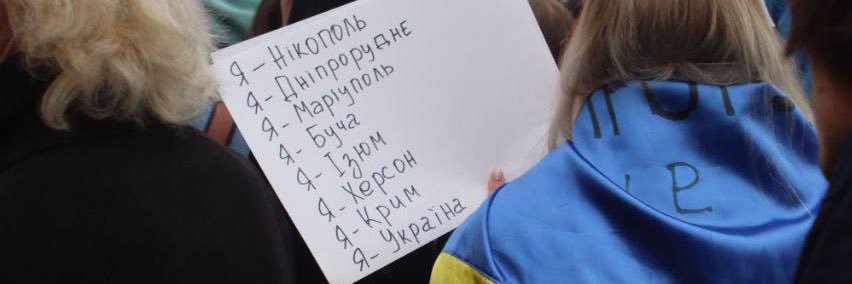 Я - Нікополь
Я - Дніпрорудне
Я - Маріуполь
Я - Буча
Я - Ізюм
Я - Херсон
Я - Крим
Я - Україна